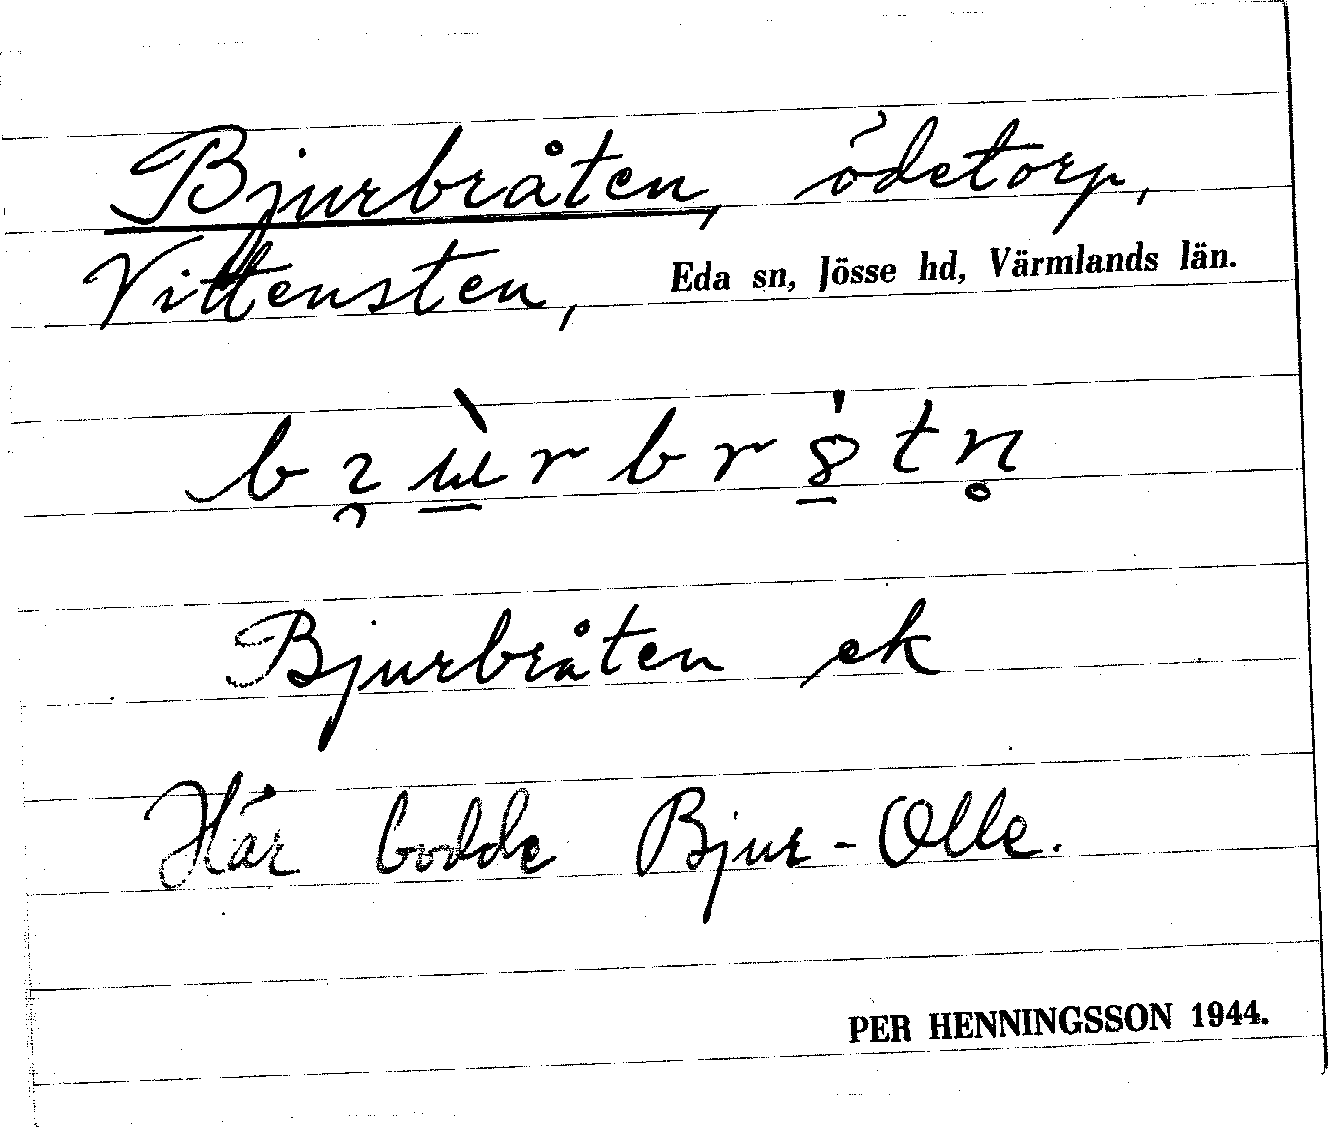 Bjurbråten, ödetorp,
Vittensten, Eda sn, Jösse hd, Värmlands län.
Bjurbråten ek
Här bodde Bjur-Olle.
PER HENNINGSSON 1944.